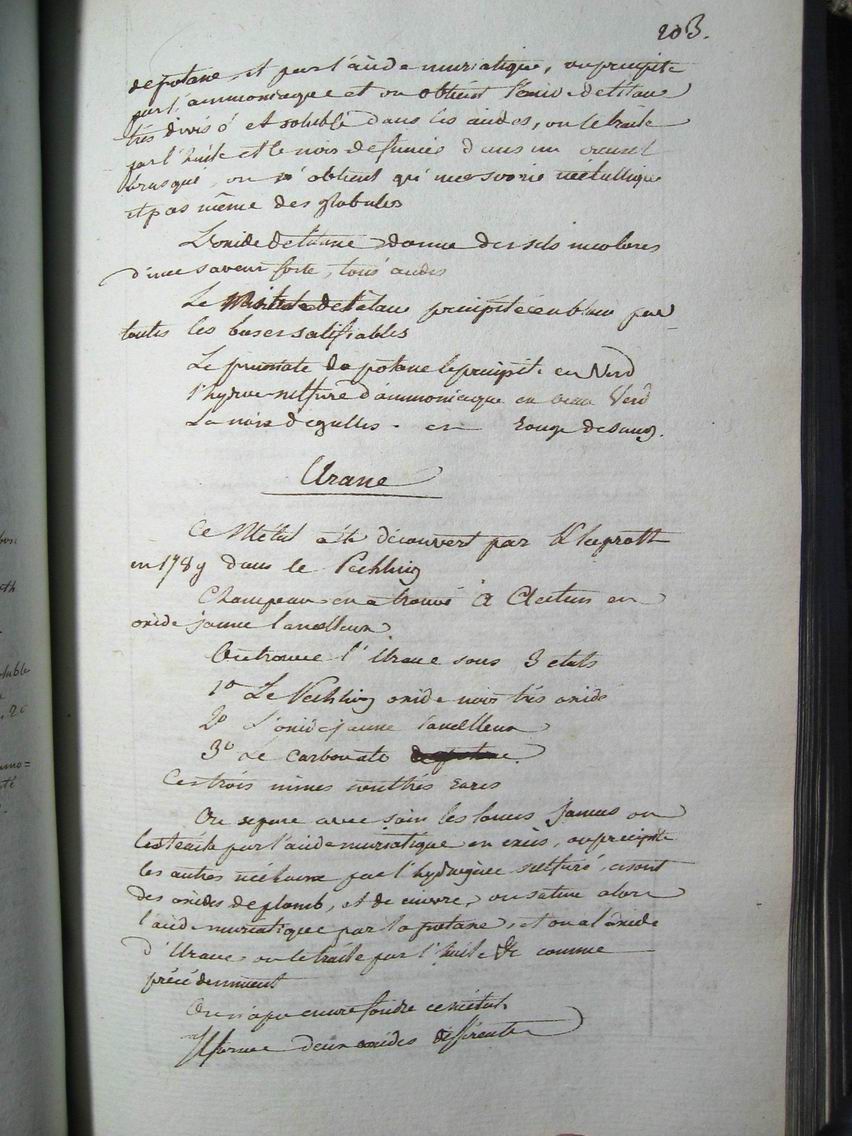 203.
de potasse et par l'acide muriatique, on precipite
par l'ammoniaque et on obtient l'oxide de titane
très divisé et soluble dans les acides, on le traite
par l'huile et le noir de fumée dans un creuset
brasqué, on n'obtient qu'une scorie métallique
et pas même des globules
L'oxide de titane donne des sels incolores
d'une saveur forte, tous acides
Le de titane precipité en blanc par
toutes les bases salifiables
Le prussiate de potasse le precipite en Verd
l'hydrosulfure d'ammoniaque en beau Verd
La noix de galles - en Rouge de sang.
Urane
Ce Métal a été découvert par Klaproth
en 1789 dans le Pechbling
Champeau en a trouvé à Autun en
oxide jaune lamelleux
On trouve l'Urane sous 3 etats
1º Le Pechbling oxide noir très oxidé
2º L'oxide jaune lamelleux
3º Le carbonate
Ces trois mines sont très rares
On separe avec soin les lames jaunes on
les traite par l'acide muriatique en excès, on precipite
les autres métaux par l'hydrogène sulfuré, ce sont
des oxides de plomb, et de cuivre, on sature alors
l'acide muriatique par la potasse, et on a l'oxide
d'Urane, on le traite par l'huile &c comme
précédemment
On n'a pu encore fondre ce métal.
Il forme deux oxides différents